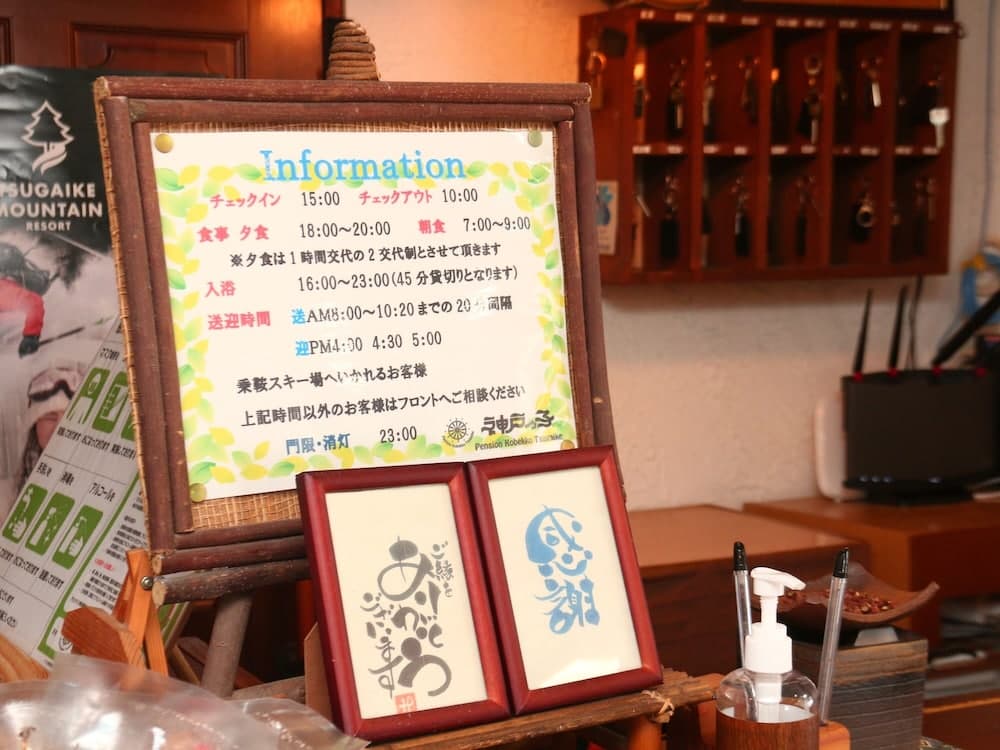 Information
チェックイン 15:00 チェックアウト 10:00
食事 夕食 18:00～20:00 朝食 7:00～9:00
※夕食は1時間交代の2交代制とさせて頂きます
入浴 16:00～23:00(45分貸切りとなります)
送迎時間 送AM8:00～10:20までの20分間隔
迎PM4:00 4:30 5:00
乗鞍スキー場へいかれるお客様
上記時間以外のお客様はフロントへご相談ください
門限・消灯 23:00
神戸っ子
Pension Kobekko Tsugaike
TSUGAIKE
MOUNTAIN
RESORT
ご縁を
ありがとう
ございます
感謝
手洗いを
消毒を
アルコールを